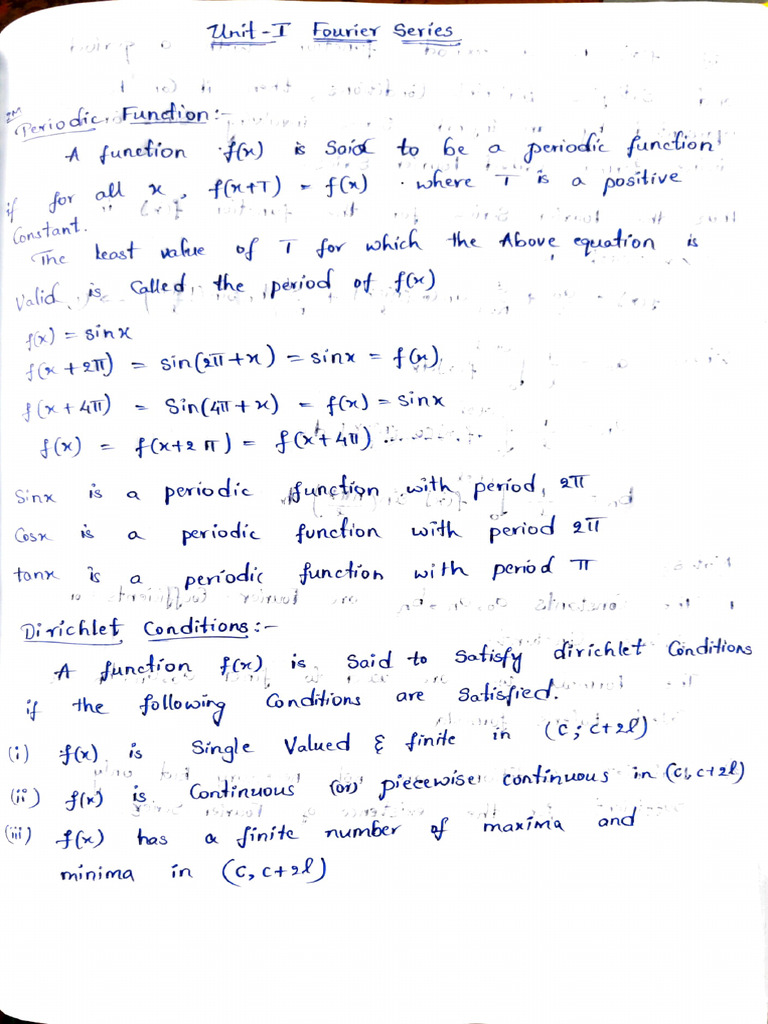 Unit-I Fourier Series
2M
Periodic Function:-
A function f(x) is said to be a periodic function
if for all x, f(x+T) = f(x) where T is a positive
Constant.
The least value of T for which the Above equation is
Valid is Called the period of f(x)
f(x) = sinx
f(x+2π) = sin(2π+x) = sinx = f(x).
f(x+4π) = Sin(4π+x) = f(x) = sinx
f(x) = f(x+2π) = f(x+4π) .....
Sinx is a periodic function with period 2π
Cosx is a periodic function with period 2π
tanx is a periodic function with period π
Dirichlet Conditions:-
A function f(x) is Said to Satisfy dirichlet Conditions
if the following Conditions are Satisfied.
(i) f(x) is Single Valued & finite in (C, C+2l)
(ii) f(x) is Continuous (or) piecewise continuous in (C, C+2l)
(iii) f(x) has a finite number of maxima and
minima in (C, C+2l)